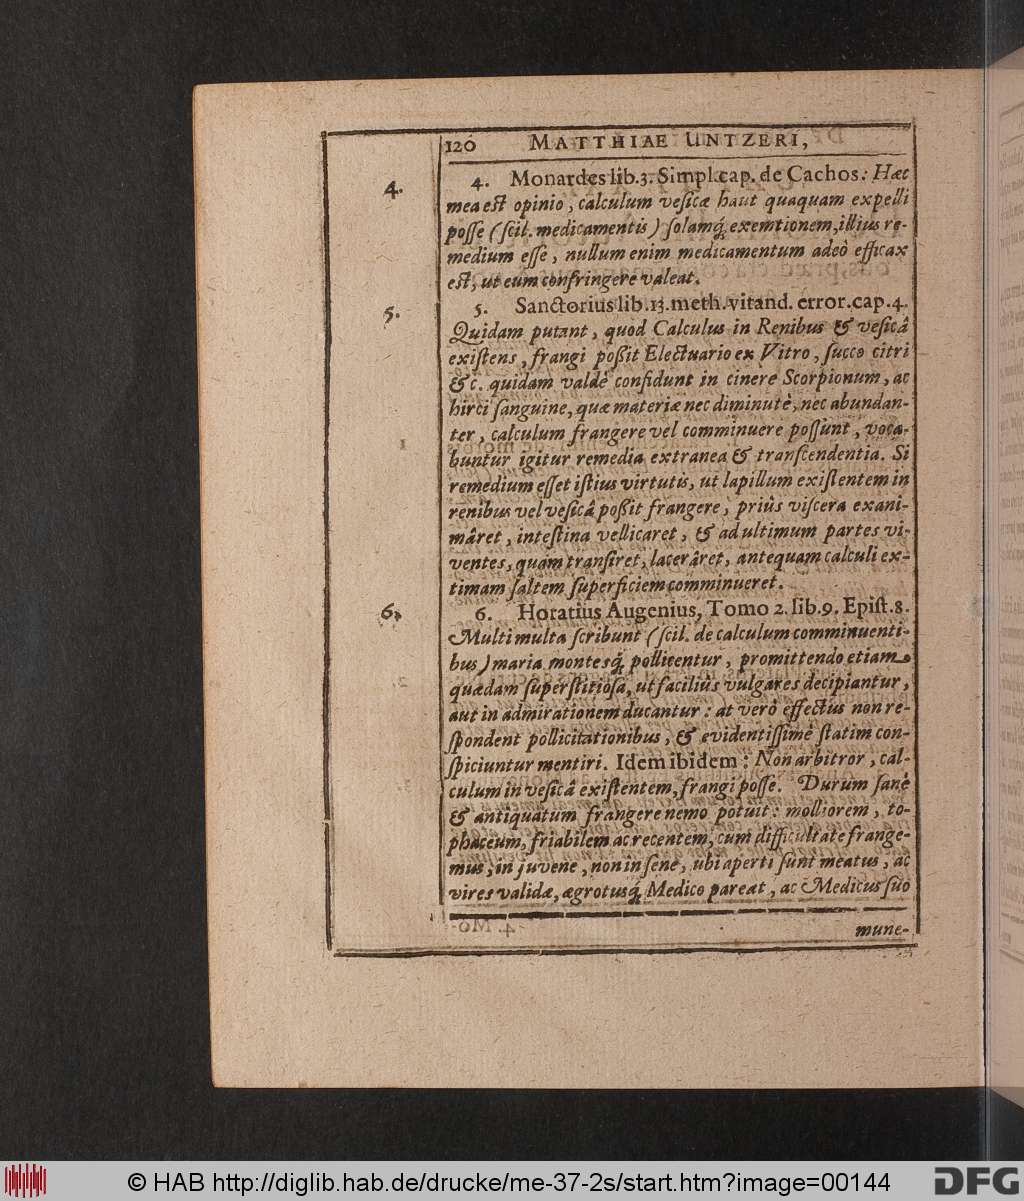 120 MATTHIAE UNTZERI,
4. 4. Monardes lib.3. Simpl.cap. de Cachos: Hæc
mea est opinio, calculum vesicæ haut quaquam expelli
posse (scil. medicamentis) solamq́; exemtionem, illius re-
medium esse, nullum enim medicamentum adeò efficax
est, ut eum confringere valeat.
5. 5. Sanctorius lib.13.meth.vitand. error.cap.4.
Quidam putant, quod Calculus in Renibus & vesicâ
existens, frangi poßit Electuario ex Vitro, succo citri
&c. quidam valdè confidunt in cinere Scorpionum, ac
hirci sanguine, quæ materiæ nec diminutè, nec abundan-
ter, calculum frangere vel comminuere possunt, voca-
buntur igitur remedia extranea & transcendentia. Si
remedium esset istius virtutis, ut lapillum existentem in
renibus vel vesicâ poßit frangere, priùs viscera exani-
mâret, intestina vellicaret, & ad ultimum partes vi-
ventes, quàm transiret, lacerâret, antequam calculi ex-
timam saltem superficiem comminueret.
6. 6. Horatius Augenius, Tomo 2. lib.9. Epist.8.
Multi multa scribunt (scil. de calculum comminuenti-
bus) maria montesq́; pollicentur, promittendo etiam
quædam superstitiosa, ut faciliùs vulgares decipiantur,
aut in admirationem ducantur: at verò effectus non re-
spondent pollicitationibus, & evidentissimè statim con-
spiciuntur mentiri. Idem ibidem: Non arbitror, cal-
culum in vesicâ existentem, frangi posse. Durum sanè
& antiquatum frangere nemo potuit: molliorem, to-
phaceum, friabilem ac recentem, cum difficultate frange-
mus, in juvene, non in sene, ubi aperti sunt meatus, ac
vires validæ, ægrotusq́; Medico pareat, ac Medicus suo
mune-
© HAB http://diglib.hab.de/drucke/me-37-2s/start.htm?image=00144
DFG